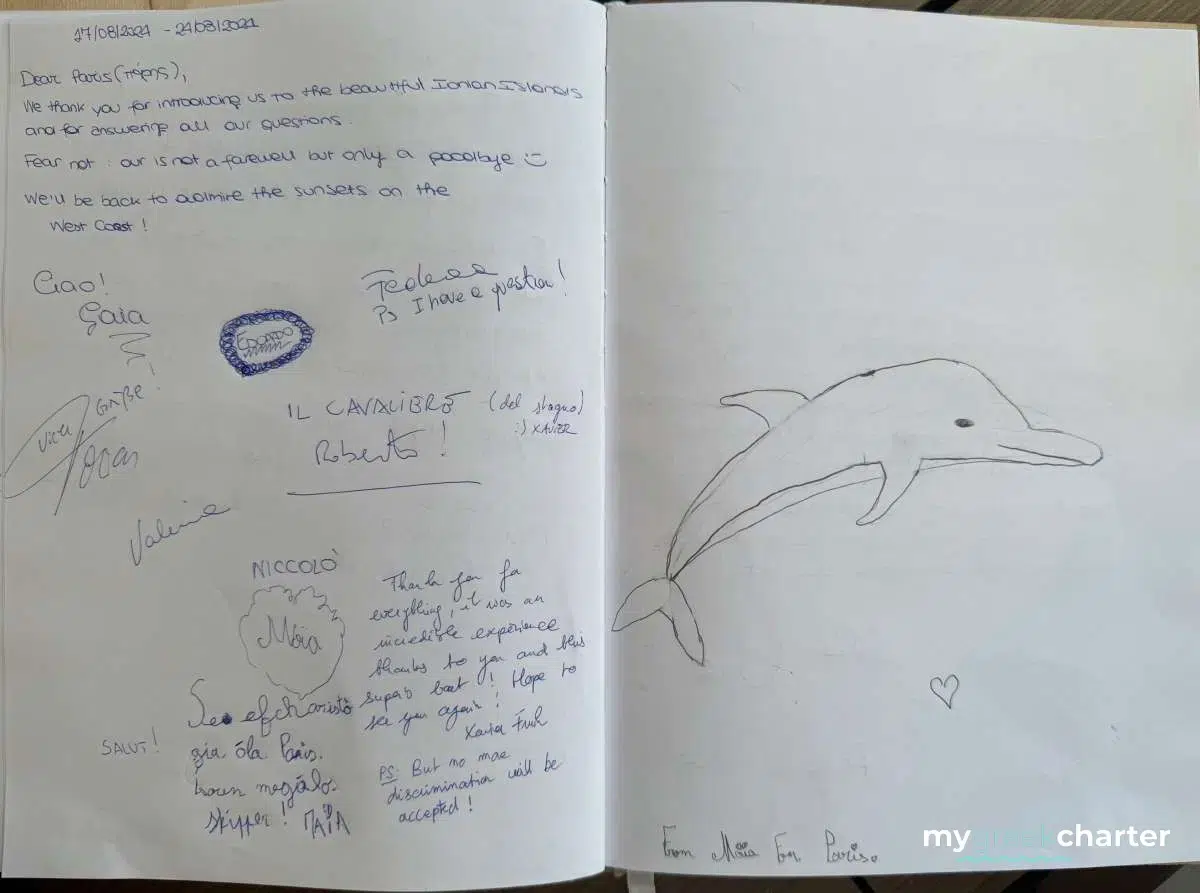 17/08/2021 - 24/08/2021
Dear Paris (Πάρης),
We thank you for introducing us to the beautiful Ionian Islands
and for answering all our questions.
Fear not: our is not a farewell but only a goodbye :)
We'll be back to admire the sunsets on the
West Coast!
Ciao!
Gaia
EDOARDO
Ps I have a question!
IL CAVALIERE (del stagno)
:) XAVIER
Roberto!
Valerie
NICCOLÒ
Maïa
Thank you for
everything, it was an
incredible experience
thanks to you and this
superb boat! Hope to
see you again!
Xavier
PS: But no more
discrimination will be
accepted!
Se efcharistó
gia óla Paris.
megálo
skipper! Μαΐα
SALUT!
From Maïa For Paris.
mygreekcharter